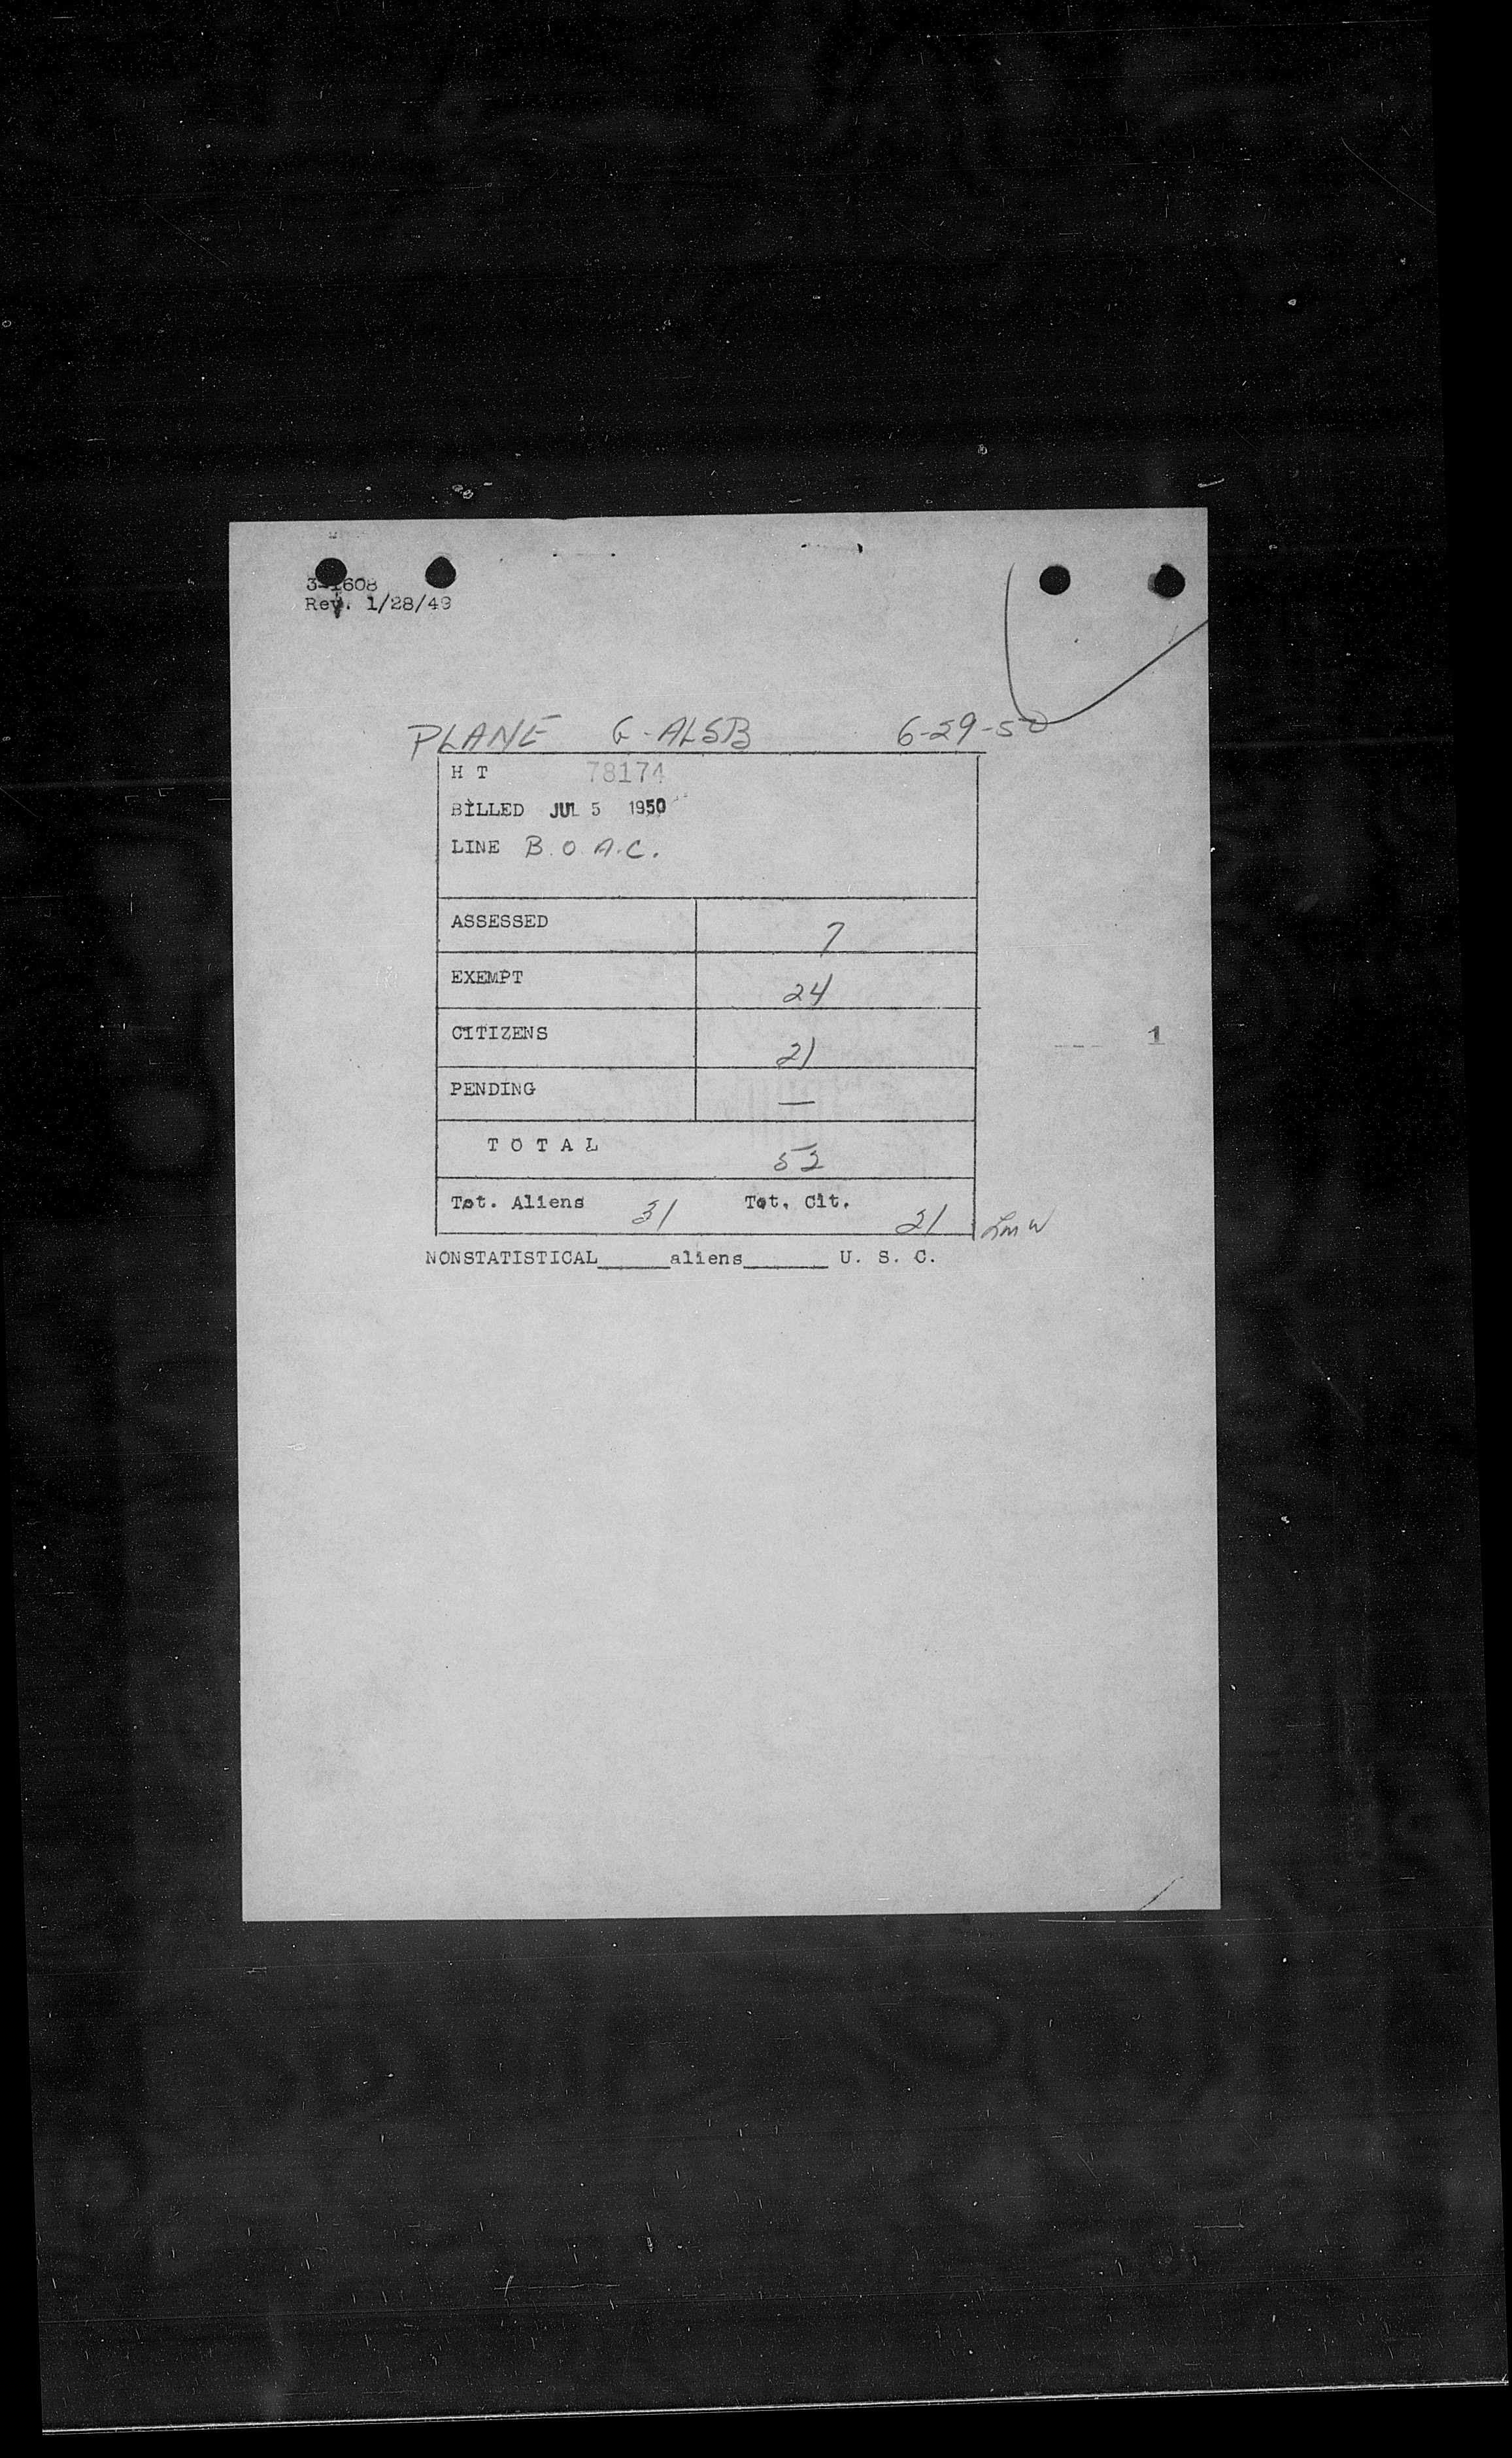 3-1608
Rev. 1/28/49
PLANE G-ALSB 6-29-50
H T 78174
BILLED JUL 5 1950
LINE B.O.A.C.
ASSESSED 7
EXEMPT 24
CITIZENS 21
1
PENDING —
T O T A L 52
Tot. Aliens 31 Tot. Cit. 21 LMW
NONSTATISTICAL_____aliens______ U. S. C.